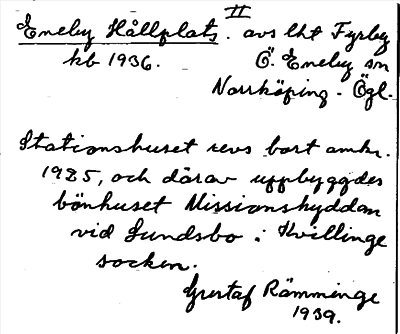 II
Eneby Hållplats. avs lht Fyrby
kb 1936. Ö. Eneby sn
Norrköping - Ögl.
Stationshuset revs bort omkr.
1925, och därav uppbyggdes
bönhuset Missionshyddan
vid Sundsbo i Kvillinge
socken.
Gustaf Rämminge
1939.